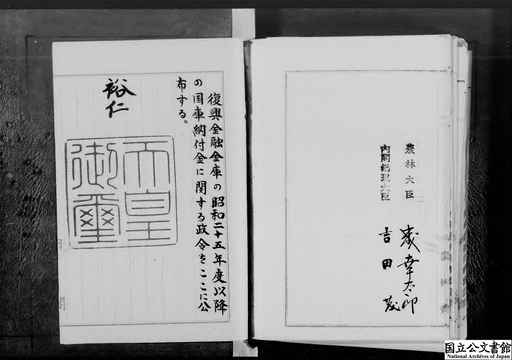 復興金融金庫の昭和二十五年度以降
の国庫納付金に関する政令をここに公
布する。
裕仁
天皇
御璽
農林大臣
内閣総理大臣 吉田茂
国立公文書館
National Archives of Japan